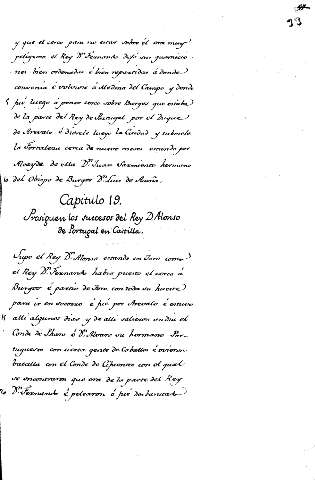 33
y que el cerco para no estar sobre él era muy
peligroso el Rey Dⁿ Fernando dejó sus guarnecio-
nes bien ordenadas é bien repartidas á donde
convenia é volviose á Medina del Campo y donde
5 fué luego á poner cerco sobre Burgos que estaba
de la parte del Rey de Portugal por el Duque
de Arevalo é diosele luego la Ciudad y tubiendo
la Fortaleza cerca de nueve meses cercada por
Alcayde de ella Dⁿ Juan Sarmiento hermano
10 del Obispo de Burgos Dⁿ Luis de Acuña.
Capítulo 19.
Prosiguen los sucesos del Rey D. Alonso
de Portugal en Castilla.
Supo el Rey Dⁿ Alonso estando en Toro como
el Rey Dⁿ Fernando habia puesto el cerco á
Burgos é partió de Toro con toda su hueste
para ir en socorro é fué por Arevalo é estuvo
allí algunos dias y de allí salieron un dia el
Conde de Faro é Dⁿ Alvaro su hermano Por-
tugueses con cierta gente de Caballo é ovieron
batalla con el Conde de Cifuentes con el qual
se encontraron que era de la parte del Rey
Dⁿ Fernando é pelearon é fué desbaratado